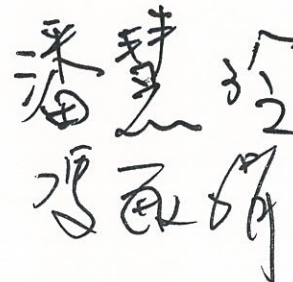 潘慧玲
冯敏娟